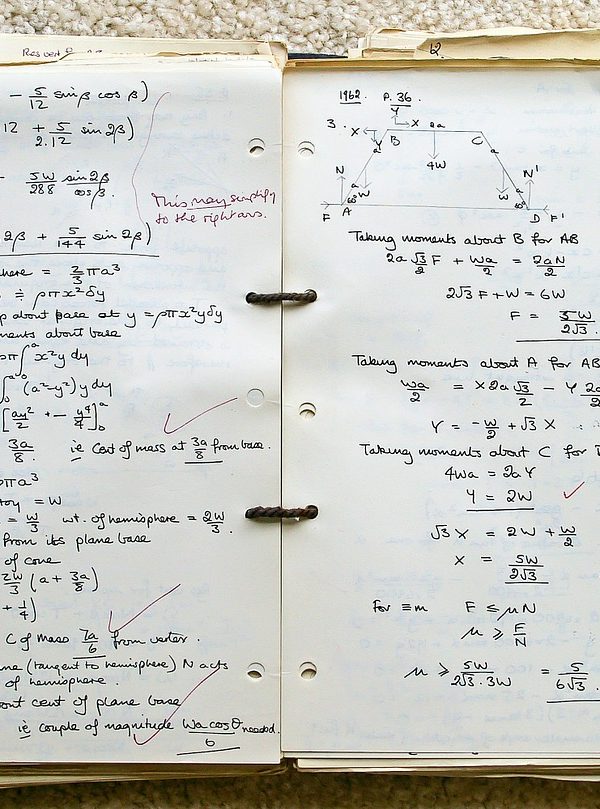 - 5/12 sinβ cosβ)
12 + 5/2.12 sin2β)
- 5W/288 sin2β/cosβ.
This may simplify
to the right ans.
2β + 5/144 sin2β)
here = 2/3 πa³
≑ ρπx²δy
about base at y = ρπx²yδy
ments about base
ρπ∫ᵃ x²y dy
∫₀ᵃ (a²-y²) y dy
[ay²/2 + - y⁴/4]₀ᵃ
3a/8. ie Cent of mass at 3a/8 from base.
ρπa³
toy = W
= W/3 wt. of hemisphere = 2W/3.
from its plane base
of cone
2W/3 (a + 3a/8)
+ 1/4)
C of mass 7a/6 from vertex.
me (tangent to hemisphere) N acts
of hemisphere
out cent of plane base
ie couple of magnitude Wa cosθ/6 needed.
12.
1962 P. 36.
3. X Y B Y X 2a C
a 4W a
N W W N'
F A 60° 60° D F'
Taking moments about B for AB
2a √3/2 F + Wa/2 = 2aN/2
2√3 F + W = 6W
F = 5W/2√3.
Taking moments about A for AB
Wa/2 = X 2a √3/2 - Y 2a
Y = -W/2 + √3 X
Taking moments about C for
4Wa = 2aY
Y = 2W
√3 X = 2W + W/2
X = 5W/2√3
For ≡m F ≤ μN
μ ≥ F/N
μ ≥ 5W/2√3.3W = 5/6√3.